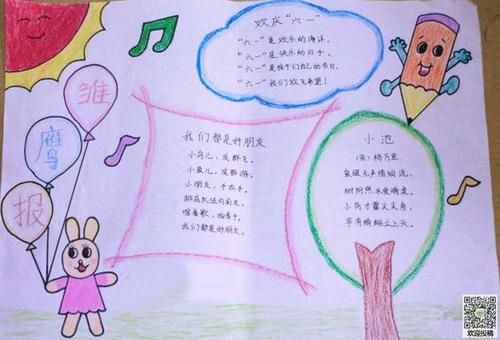 雏
鹰
报
欢庆“六一”
“六一”是欢乐的海洋,
“六一”是快乐的日子,
“六一”是孩子们自己的节日,
“六一”我们放飞希望!
我们都是好朋友
小鸟儿,成群飞,
小鱼儿,成群游,
小朋友,手拉手,
排成队伍向前走。
唱着歌,拍着手,
我们都是好朋友。
小池
(宋)杨万里
泉眼无声惜细流,
树阴照水爱晴柔。
小荷才露尖尖角,
早有蜻蜓立上头。
欢迎投稿